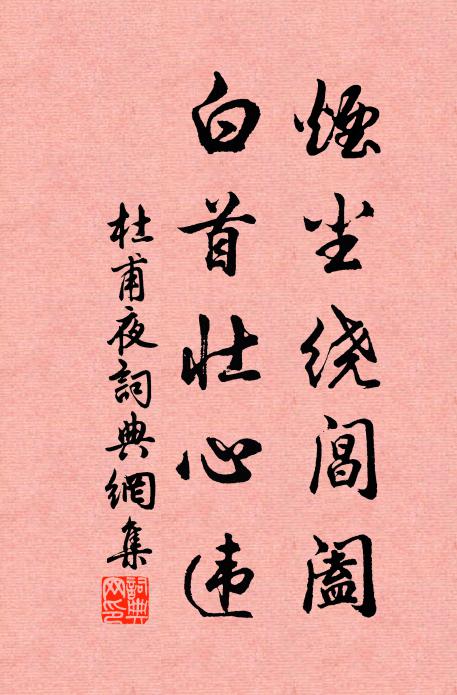 煙尘绕阊阖
白首壮心违
杜甫夜詞典網集
詞典网印